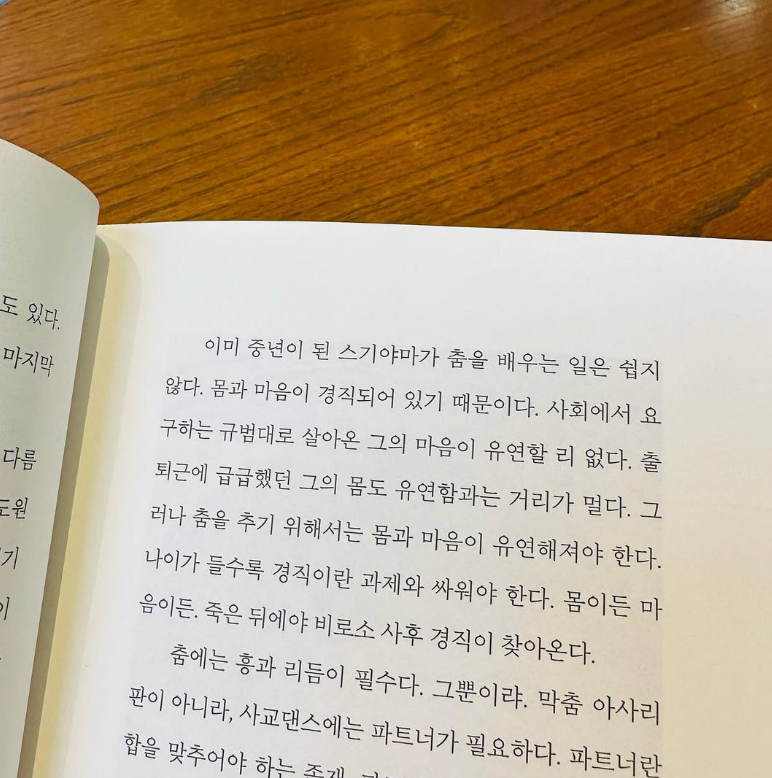 도 있다.
마지막
다름
도원
기
이
이미 중년이 된 스기야마가 춤을 배우는 일은 쉽지
않다. 몸과 마음이 경직되어 있기 때문이다. 사회에서 요
구하는 규범대로 살아온 그의 마음이 유연할 리 없다. 출
퇴근에 급급했던 그의 몸도 유연함과는 거리가 멀다. 그
러나 춤을 추기 위해서는 몸과 마음이 유연해져야 한다.
나이가 들수록 경직이란 과제와 싸워야 한다. 몸이든 마
음이든. 죽은 뒤에야 비로소 사후 경직이 찾아온다.
춤에는 흥과 리듬이 필수다. 그뿐이랴. 막춤 아사리
판이 아니라, 사교댄스에는 파트너가 필요하다. 파트너란
합을 맞추어야 하는 존재.